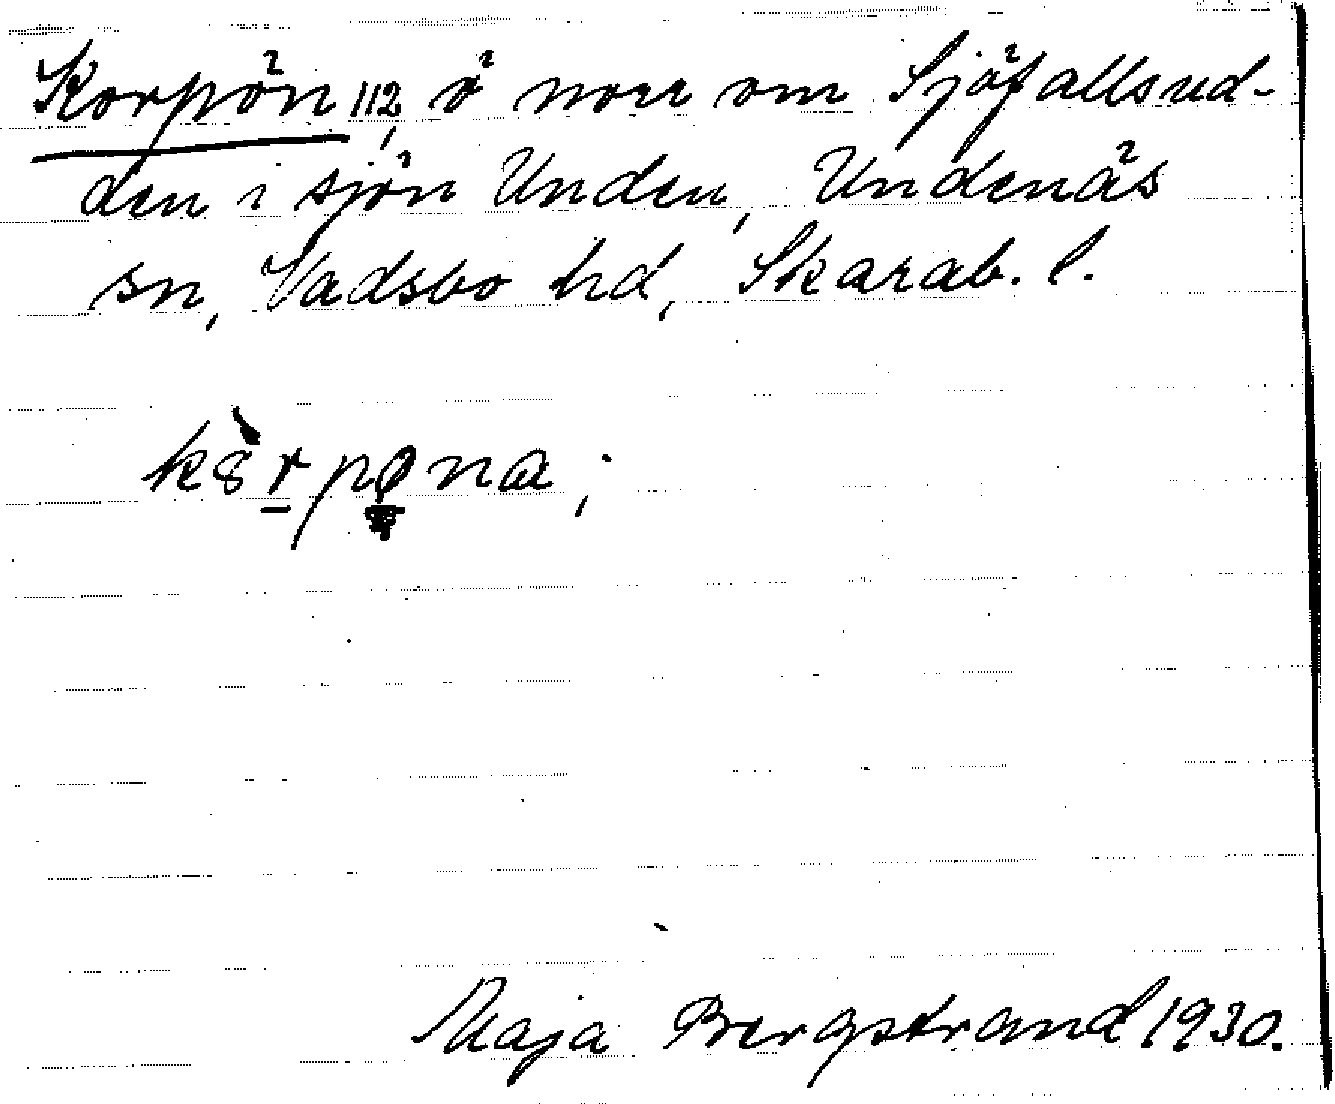 Korpön 112, ö norr om Sjöfallsud-
den i sjön Unden, Undenäs
sn, Vadsbo hd, Skarab. l.
Maja Bergstrand 1930.